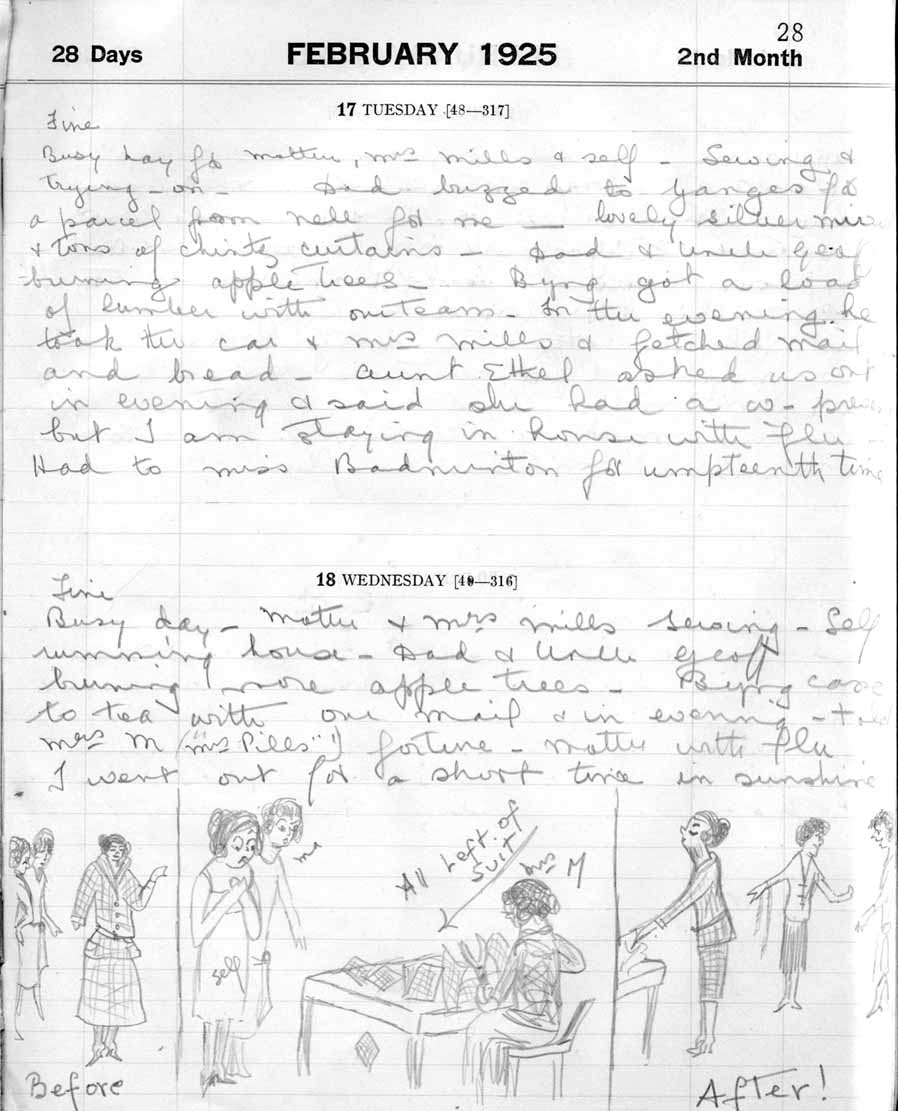 28
28 Days FEBRUARY 1925 2nd Month
17 TUESDAY [48—317]
Fine
Busy day for mother, Mrs Mills & self - Sewing &
trying - on - Dad buzzed to Ganges for
a parcel from Nell for me — lovely silver
& tons of chintz curtains - Dad & Uncle Geoff
burning apple trees - Byng got a load
of lumber with our team - In the evening he
took the car & Mrs Mills & fetched mail
and bread - Aunt Ethel asked us out
in evening & said she had a
but I am staying in house with 'flu -
Had to miss Badminton for umpteenth time
18 WEDNESDAY [49—316]
Fine
Busy day - Mother & Mrs Mills sewing - Self
running house - Dad & Uncle Geoff
burning more apple trees - Byng came
to tea with our mail & in evening - told
Mrs M ("Mrs Pills"!) fortune - Mother with flu
I went out for a short time in sunshine
Ma
All Left of
Suit
Mrs M
self
Before
After!